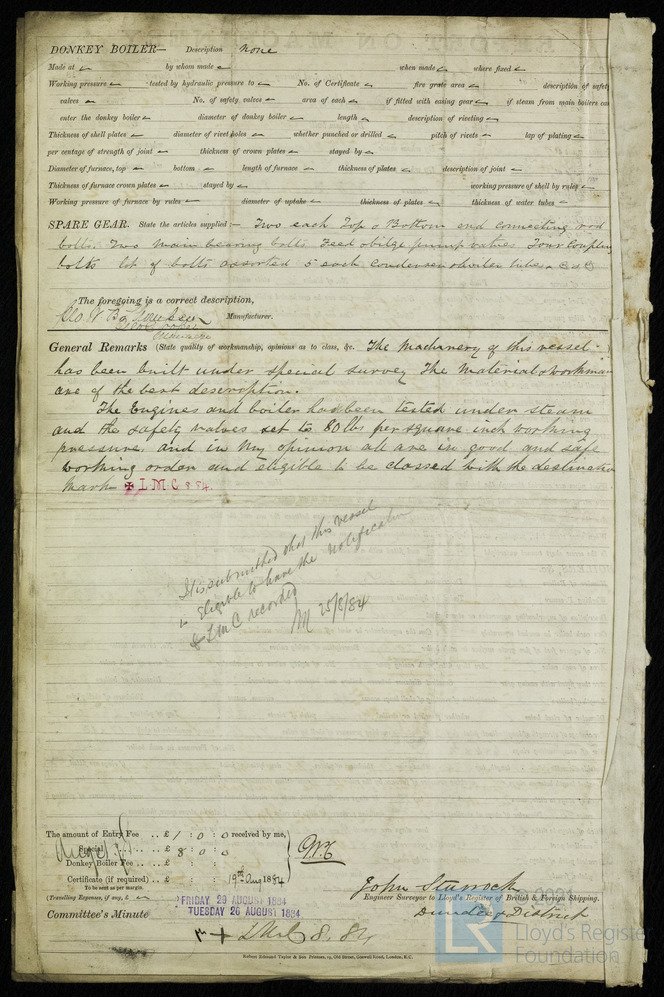 DONKEY BOILER— Description none
Made at by whom made when made where fixed
Working pressure tested by hydraulic pressure to No. of Certificate fire grate area description of safety
valves No. of safety valves area of each if fitted with easing gear if steam from main boilers can
enter the donkey boiler diameter of donkey boiler length description of riveting
Thickness of shell plates diameter of rivet holes whether punched or drilled pitch of rivets lap of plating
per centage of strength of joint thickness of crown plates stayed by
Diameter of furnace, top bottom length of furnace thickness of plates description of joint
Thickness of furnace crown plates stayed by working pressure of shell by rules
Working pressure of furnace by rules diameter of uptake thickness of plates thickness of water tubes
SPARE GEAR. State the articles supplied:— Two each Top & Bottom end connecting rod
bolts Two main bearing bolts Feed & bilge pump valves Four Coupling
bolts lot of bolts assorted 5 each Condenser & boiler tubes
The foregoing is a correct description,
Manufacturer.
General Remarks (State quality of workmanship, opinions as to class, &c. The Machinery of this vessel
has been built under special survey The Material & workman
are of the best description.
The Engines and boiler has been tested under steam
and the safety valves set to 80 lbs per square inch working
pressure and in my opinion all are in good and safe
working order and eligible to be classed with the destinctive
mark ✠ L.M.C 8 84.
It is submitted that this vessel
is Eligible to have the notification
✠ LMC recorded
25/8/84
The amount of Entry Fee .. £ 1 : 0 : 0 received by me,
Special .. .. £ 8 : 0 : 0
Donkey Boiler Fee .. £ : :
Certificate (if required) .. £ : : 19th Aug 1884
To be sent as per margin.
(Travelling Expenses, if any, £
John Sturrock
Engineer Surveyor to Lloyd's Register of British & Foreign Shipping.
Dundee District
FRIDAY 29 AUGUST 1884
TUESDAY 26 AUGUST 1884
Committee's Minute
+ LMC 8.84
Robert Edmund Taylor & Son Printers, 19, Old Street, Goswell Road, London, E.C.
LR Lloyd's Register
Foundation